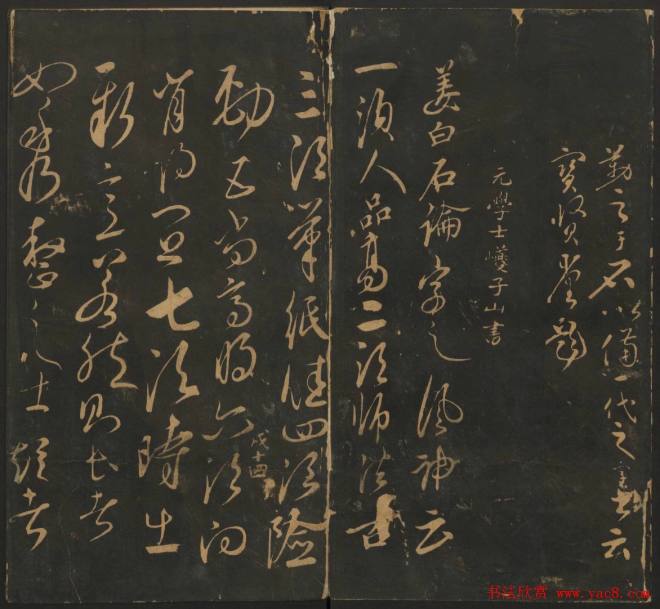 勒之于石以備一代之云
寶賢堂題
元學士巙子山書
姜白石論字之風神云
一須人品高二須師法古
三須筆紙佳四須險
戊十四
勁五高明六須向
背得宜七須時出
新意若然則長者
如秀整之士短者
书法欣赏 www.yac8.com